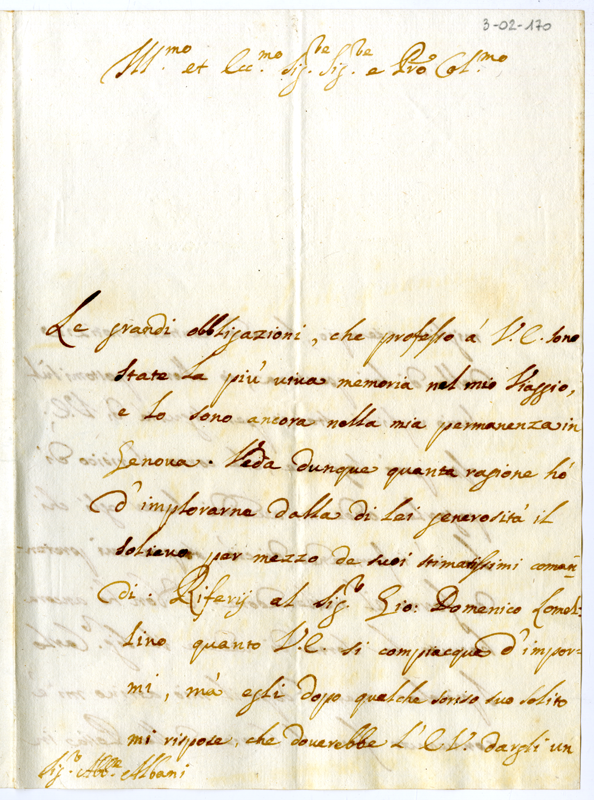 3-02-170
Ill.mo et Ecc.mo Sig.re Sig.re e Pro͂n Col.mo
Le grandi obbligazioni, che professo à V.E. sono
state la più viva memoria nel mio Viaggio,
e lo sono ancora nella mia permanenza in
Genova. Veda dunque quanta ragione hò
d'implorarne dalla di lei generosità il
solievo per mezzo de suoi stimatissimi coman=
di. Riferij al Sig.r Gio: Domenico Lomel=
lino quanto V.E. si compiacque d'impor=
mi, mà egli dopo qualche soriso suo solito
mi rispose, che doverebbe l'E.V. dargli un
Sig.r Abb.e Albani